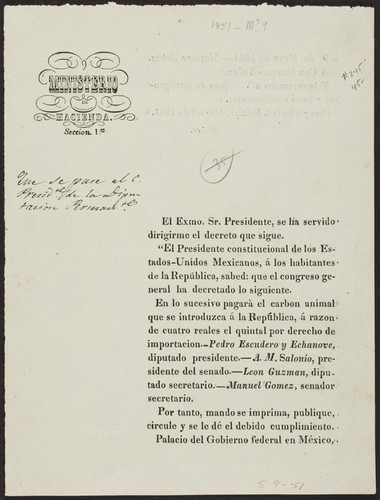 1851 - Mº 9
$ 245
45
MINISTERIO
DE
HACIENDA.
Seccion. 1.ª
Que se pase al C.
Presid.te de la Dipu
tacion Perman.te
El Exmo. Sr. Presidente, se ha servido
dirigirme el decreto que sigue.
"El Presidente constitucional de los Es-
tados-Unidos Mexicanos, á los habitantes
de la República, sabed: que el congreso ge-
neral ha decretado lo siguiente.
En lo sucesivo pagará el carbon animal
que se introduzca á la República, á razon
de cuatro reales el quintal por derecho de
importacion.—Pedro Escudero y Echanove,
diputado presidente.—A. M. Salonio, pre-
sidente del senado.—Leon Guzman, dipu-
tado secretario.—Manuel Gomez, senador
secretario.
Por tanto, mando se imprima, publique,
circule y se le dé el debido cumplimiento.
Palacio del Gobierno federal en México,
5-9-51